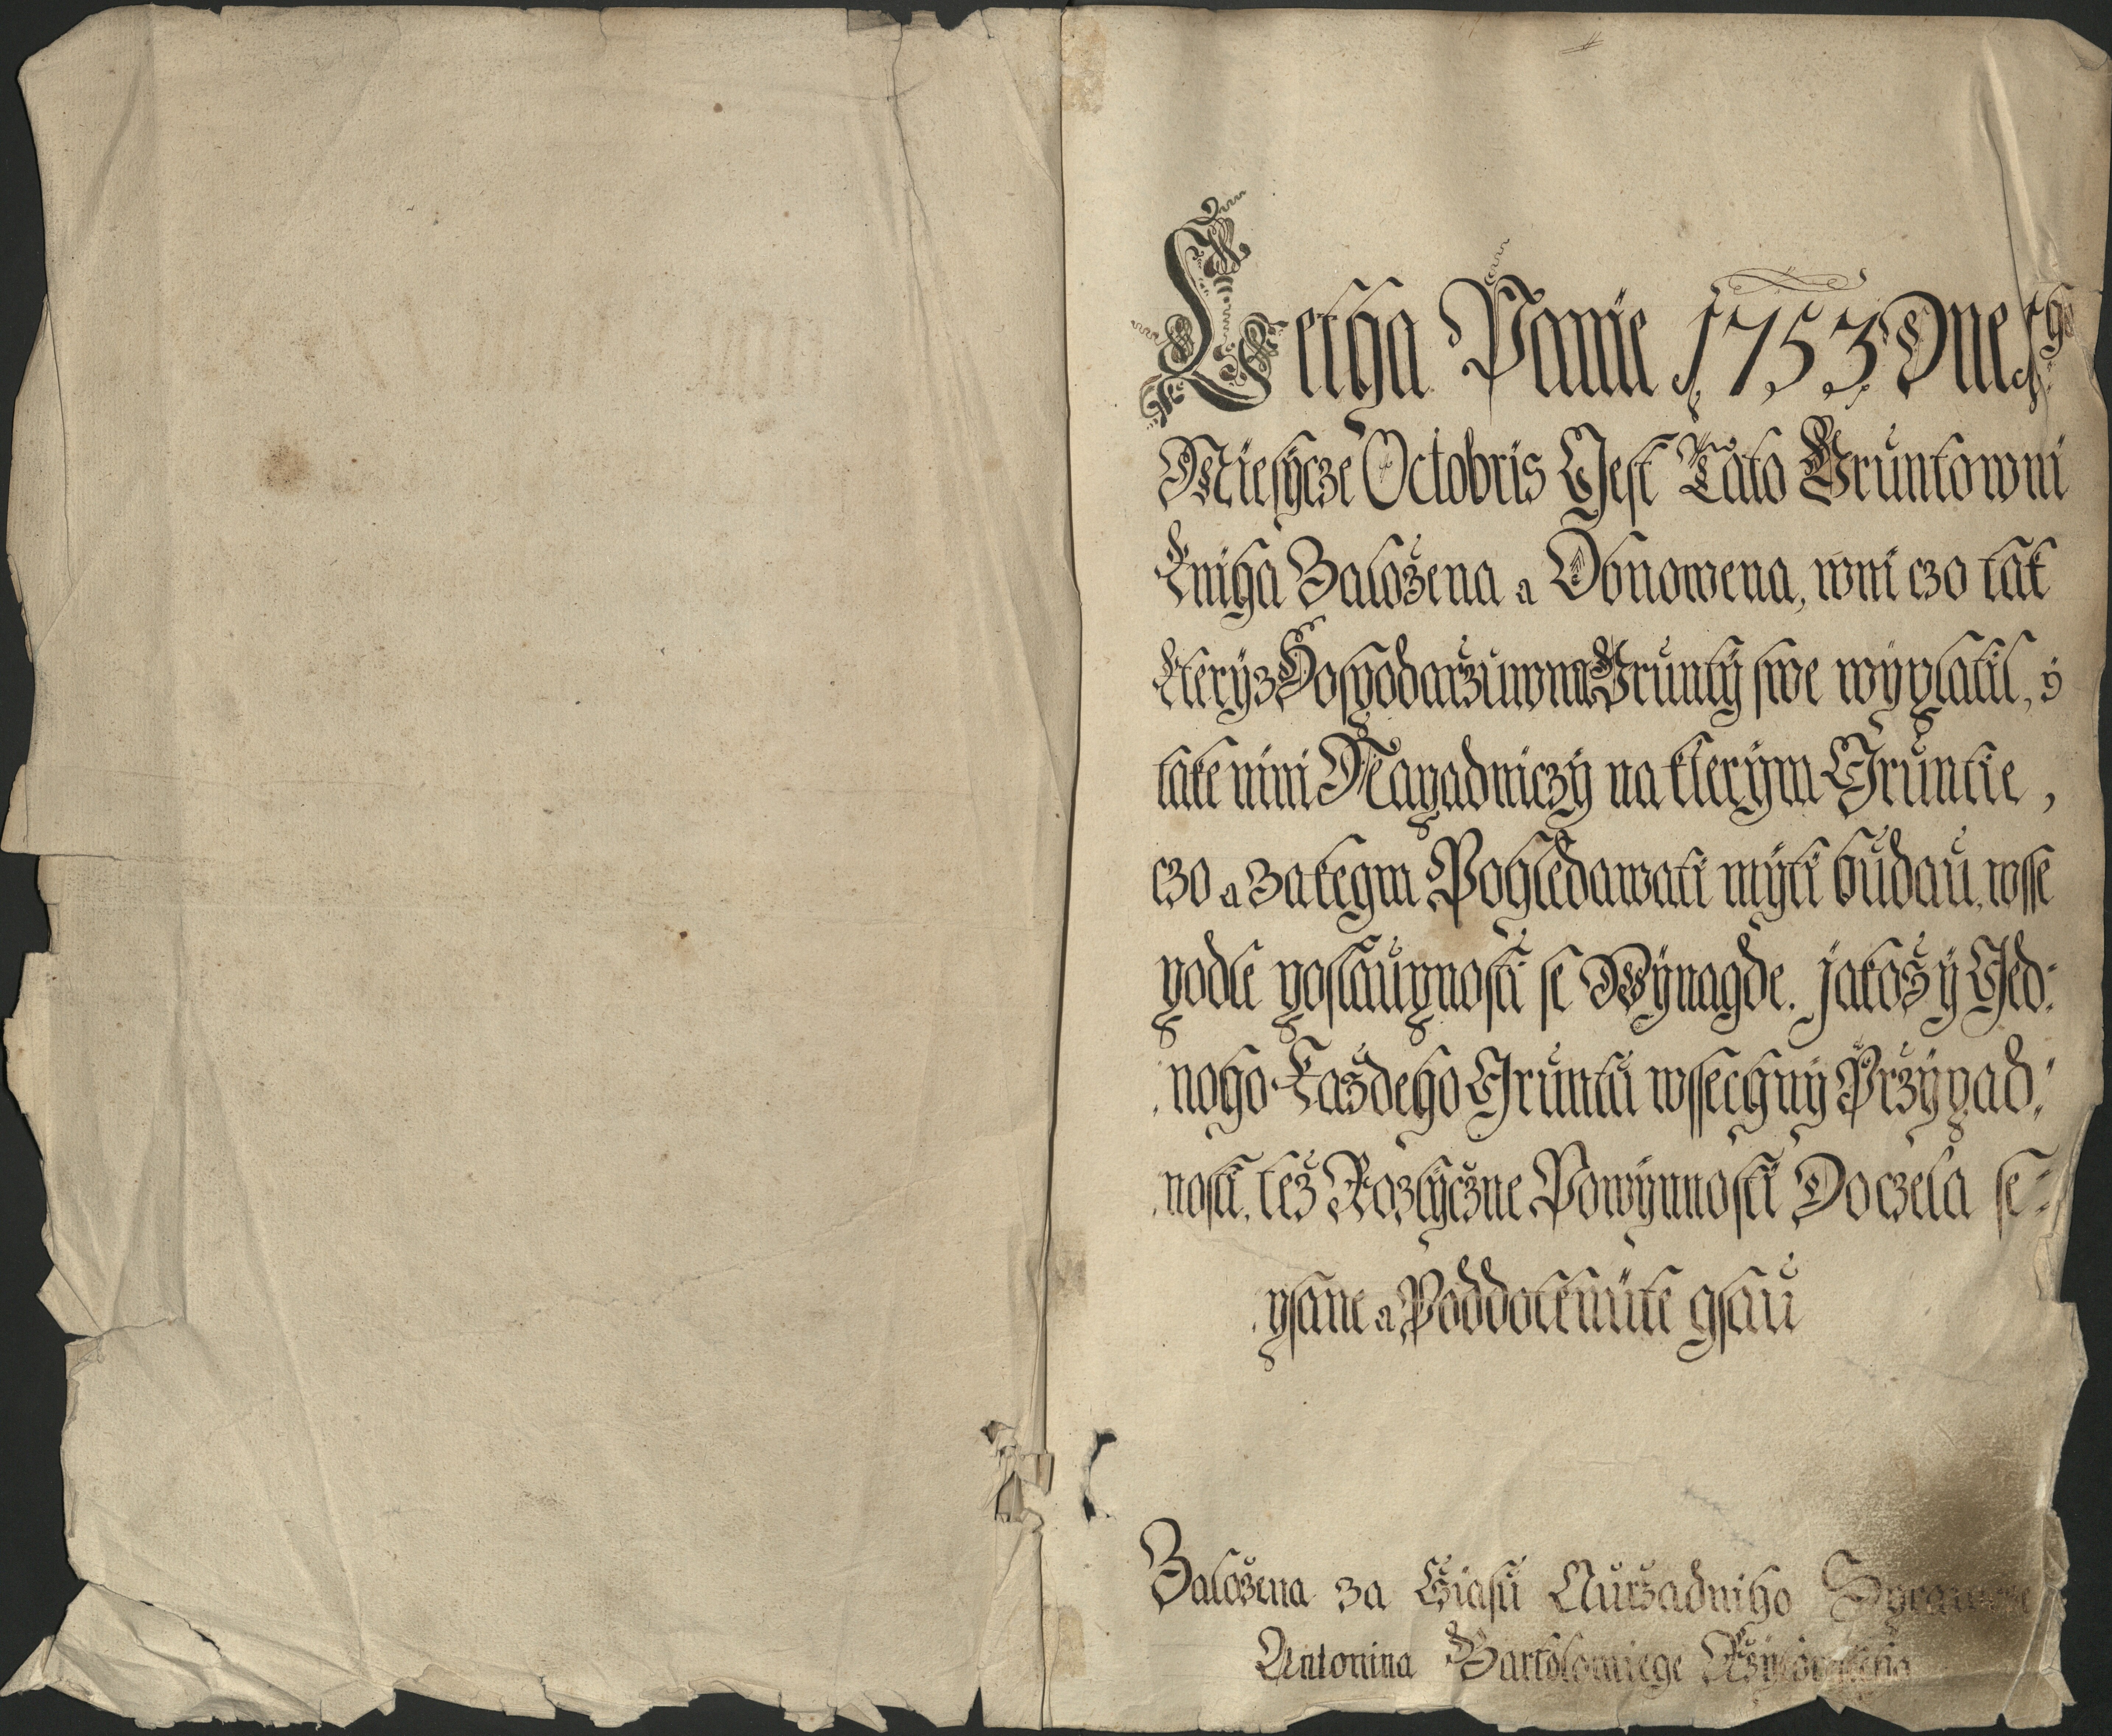 Letha Panie 1753 Dne 1ho
Miesycze Octobris Gest Tato Gruntowni
Kniha Založena a Obnowena, wni czo tak
kterýz Hospodaržuwna Grunty swe wýplatil, ý
take nini Napadniczý na kterým Gruntie,
czo a zakegm Pohledawati mýti budau, wsse
podle poslaupnosti se Wýnagde. jakož ý Ged:
noho Každeho Gruntu wssechný Pržýpad:
nosti, též Rozlýczne Powýnnosti Doczela se=
psane a Poddotknüte gsau
Založena za Cžiasu Auržadniho
Antonina Bartolomiege